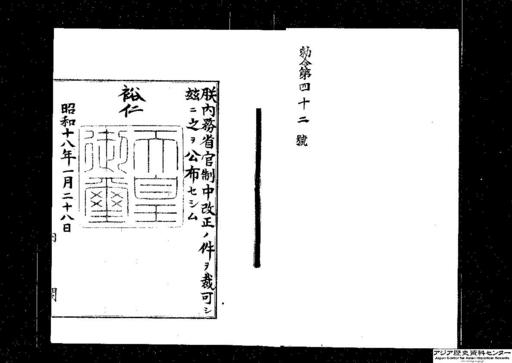 勅令第四十二號
朕內務省官制中改正ノ件ヲ裁可シ
玆ニ之ヲ公布セシム
裕仁
天皇
御璽
昭和十八年一月二十八日
内閣
アジア歴史資料センター
Japan Center for Asian Historical Records